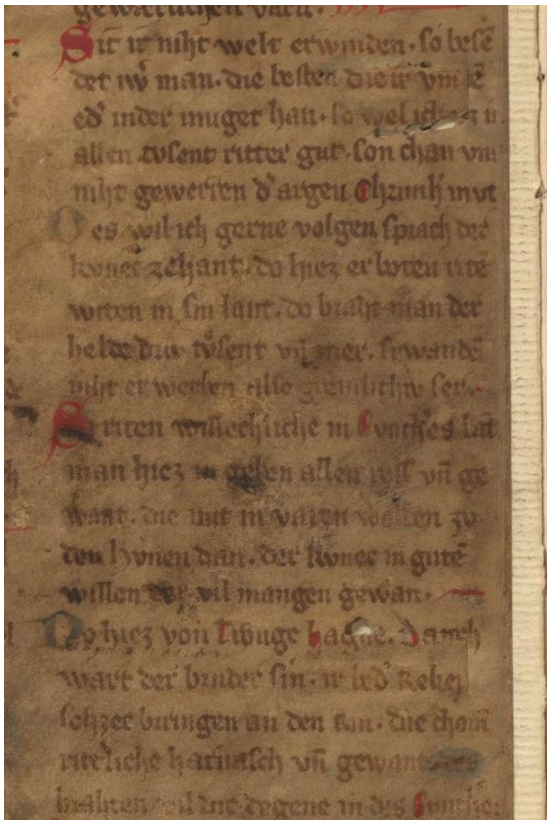 gewærlichen varn.
Sit ir niht welt erwinden. so besē
det iwͬ man. die besten die ir vin
oder inder muget han. so wel ich
allen tvsent ritter gut. son chan vns
niht gewerren d argen Chrimh mvt
Des wil ich gerne volgen sprach der
kvnec zehant. do hiez er boten rite
witen in siv lant. do braht man der
helde driv tvsent vn̄ mer. si wandē
niht erwerben also grœmlichiv ser.
Si riten willechliche in Gunthes lāt
man hiez in geben allen ross vn̄ ge
want. die mit in varen wolten zv
den hvnen dan. der kvnec in gutē
willen vil mangen gewan.
Do hiez von Tronege hagne. Danch
wart der bruder sin. ir
sehzec bringen an den Rin. die chomē
riterliche harnasch vn̄ gewant
brahten die degene in dc Gunthes